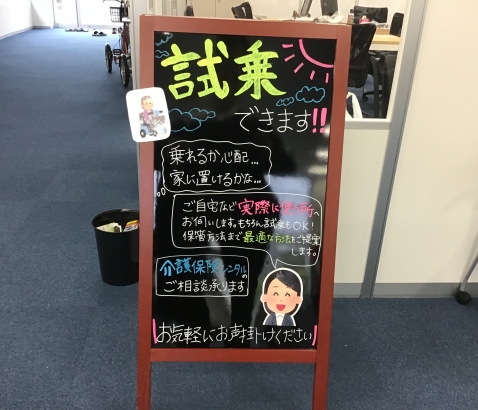 試乗
できます!!
乗れるか心配…
家に置けるかな…
ご自宅など実際に使う所へ
お伺いします。もちろん試乗もOK!
保管方法まで最適な方法をご提案
します。
介護保険レンタルの
ご相談承ります
お気軽にお声掛けください